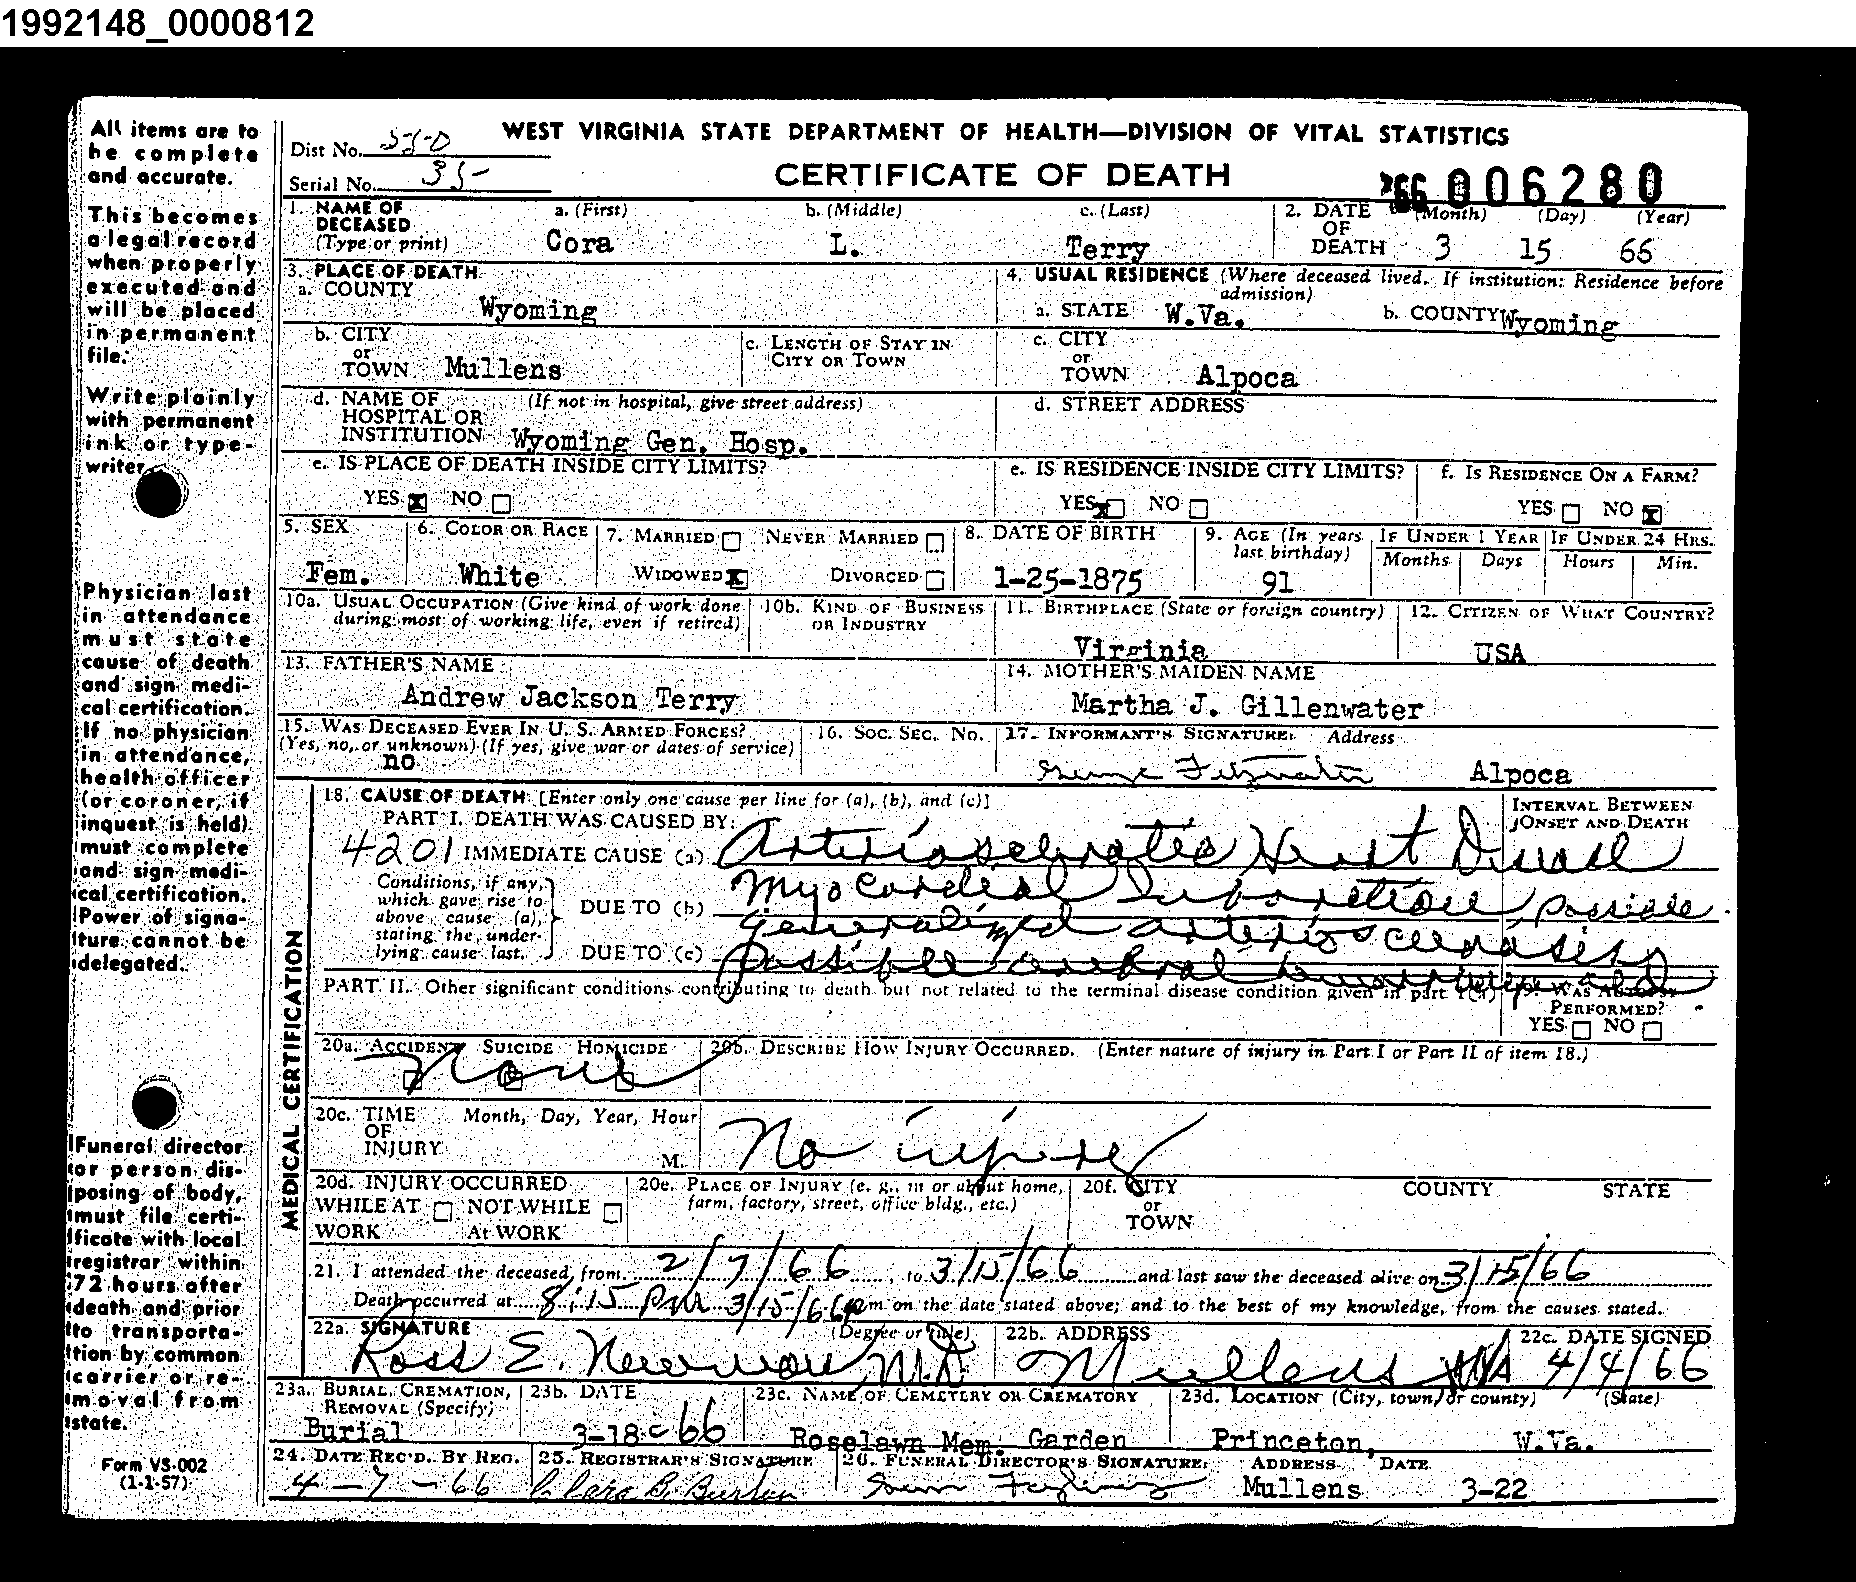 1992148_0000812
All items are to be complete and accurate.
This becomes a legal record when properly executed and will be placed in permanent file.
Write plainly with permanent ink or typewriter.
Physician last in attendance must state cause of death and sign medical certification. If no physician in attendance, health officer (or coroner, if inquest is held) must complete and sign medical certification. Power of signature cannot be delegated.
Funeral director or person disposing of body, must file certificate with local registrar within 72 hours after death and prior to transportation by common carrier or removal from state.
Form VS-002
(1-1-57)
WEST VIRGINIA STATE DEPARTMENT OF HEALTH—DIVISION OF VITAL STATISTICS
Dist No. 550
CERTIFICATE OF DEATH
Serial No. 35
'66 006280
1. NAME OF DECEASED (Type or print) a. (First) b. (Middle) c. (Last)
Cora L. Terry
2. DATE OF DEATH (Month) (Day) (Year)
3 15 66
3. PLACE OF DEATH
a. COUNTY
Wyoming
4. USUAL RESIDENCE (Where deceased lived. If institution: Residence before admission)
a. STATE W.Va. b. COUNTY Wyoming
b. CITY or TOWN Mullens
c. LENGTH OF STAY IN CITY OR TOWN
c. CITY or TOWN Alpoca
d. NAME OF HOSPITAL OR INSTITUTION (If not in hospital, give street address)
Wyoming Gen. Hosp.
d. STREET ADDRESS
e. IS PLACE OF DEATH INSIDE CITY LIMITS?
YES X NO
e. IS RESIDENCE INSIDE CITY LIMITS?
YES X NO
f. IS RESIDENCE ON A FARM?
YES NO X
5. SEX
Fem.
6. COLOR OR RACE
White
7. MARRIED NEVER MARRIED
WIDOWED X DIVORCED
8. DATE OF BIRTH
1-25-1875
9. AGE (In years last birthday)
91
IF UNDER 1 YEAR
Months Days
IF UNDER 24 HRS.
Hours Min.
10a. USUAL OCCUPATION (Give kind of work done during most of working life, even if retired)
10b. KIND OF BUSINESS OR INDUSTRY
11. BIRTHPLACE (State or foreign country)
Virginia
12. CITIZEN OF WHAT COUNTRY?
USA
13. FATHER'S NAME
Andrew Jackson Terry
14. MOTHER'S MAIDEN NAME
Martha J. Gillenwater
15. WAS DECEASED EVER IN U. S. ARMED FORCES?
(Yes, no, or unknown) (If yes, give war or dates of service)
no
16. SOC. SEC. NO.
17. INFORMANT'S SIGNATURE: Address
Alpoca
MEDICAL CERTIFICATION
18. CAUSE OF DEATH [Enter only one cause per line for (a), (b), and (c)]
INTERVAL BETWEEN ONSET AND DEATH
PART I. DEATH WAS CAUSED BY:
4201 IMMEDIATE CAUSE (a) Arteriosclerotic Heart Disease
Conditions, if any, which gave rise to above cause (a), stating the underlying cause last.
DUE TO (b) Myocardial Infarction, possible
generalized arteriosclerosis
DUE TO (c) possible cerebral
PART II. Other significant conditions contributing to death but not related to the terminal disease condition given in part I(a)
19. WAS AUTOPSY PERFORMED?
YES NO
20a. ACCIDENT SUICIDE HOMICIDE
None
20b. DESCRIBE HOW INJURY OCCURRED. (Enter nature of injury in Part I or Part II of item 18.)
20c. TIME OF INJURY Month, Day, Year, Hour
M.
No injury
20d. INJURY OCCURRED
WHILE AT WORK NOT WHILE At WORK
20e. PLACE OF INJURY (e. g., in or about home, farm, factory, street, office bldg., etc.)
20f. CITY or TOWN COUNTY STATE
21. I attended the deceased from 2/7/66, to 3/15/66 and last saw the deceased alive on 3/15/66
Death occurred at 8:15 PM 3/15/66 m on the date stated above; and to the best of my knowledge, from the causes stated.
22a. SIGNATURE (Degree or title)
Ross E. Newman M.D.
22b. ADDRESS
Mullens WVa
22c. DATE SIGNED
4/4/66
23a. BURIAL, CREMATION, REMOVAL (Specify)
Burial
23b. DATE
3-18-66
23c. NAME OF CEMETERY OR CREMATORY
Roselawn Mem. Garden
23d. LOCATION (City, town, or county) (State)
Princeton, W.Va.
24. DATE REC'D. BY REG.
4-7-66
25. REGISTRAR'S SIGNATURE
Clara B. Burton
26. FUNERAL DIRECTOR'S SIGNATURE: ADDRESS DATE
Mullens 3-22